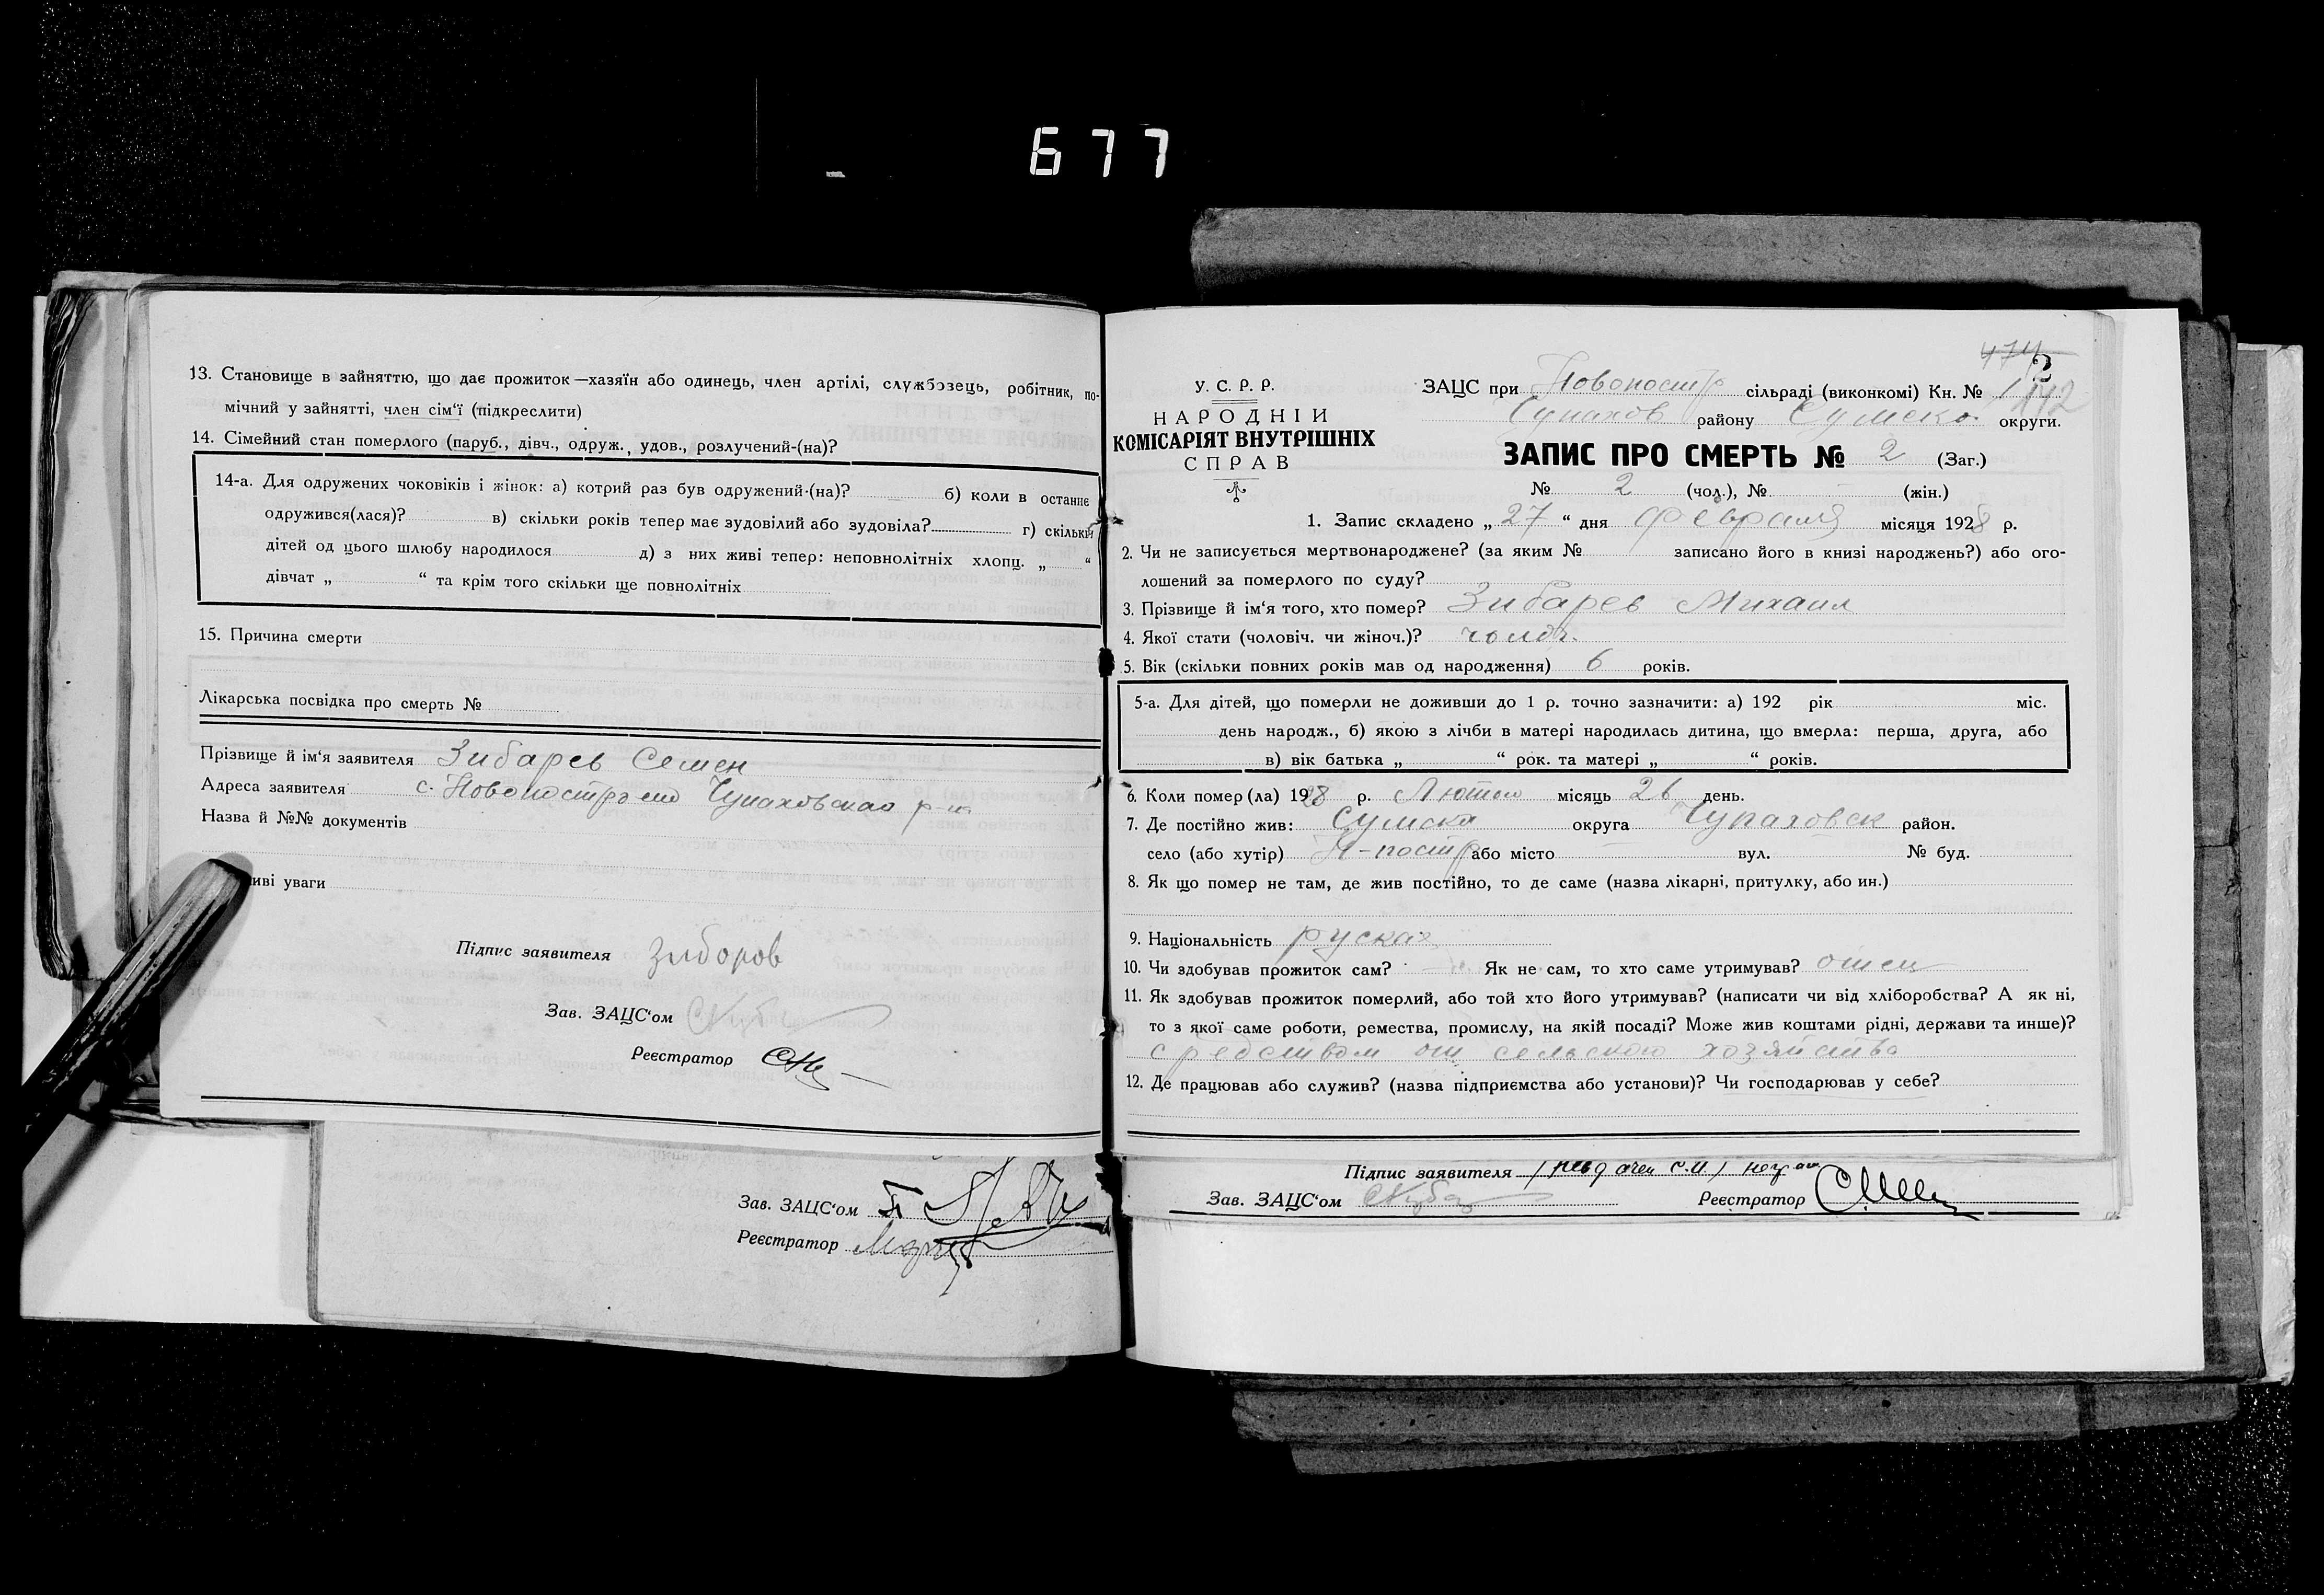 677
13. Становище в зайняттю, що дає прожиток—хазяїн або одинець, член артілі, службовець, робітник, по-
мічний у зайнятті, член сім'ї (підкреслити)
14. Сімейний стан померлого (паруб., дівч., одруж., удов., розлучений-(на)?
14-а. Для одружених чоковіків і жінок: а) котрий раз був одружений-(на)? б) коли в останнє
одружився(лася)? в) скільки років тепер має зудовілий або зудовіла? г) скільки
дітей од цього шлюбу народилося д) з них живі тепер: неповнолітніх хлопц. „ “
дівчат „ “ та крім того скільки ще повнолітніх
15. Причина смерти
Лікарська посвідка про смерть №
Прізвище й ім'я заявителя Зибарев Семен
Адреса заявителя с.
Назва й №№ документів
иві уваги
Підпис заявителя Зиборов
Зав. ЗАЦС'ом
Реєстратор
Зав. ЗАЦС'ом
Реєстратор
474
2
У. С. Р. Р.
НАРОДНІЙ
КОМІСАРІЯТ ВНУТРІШНІХ
СПРАВ
ЗАЦС при Новопостр сільраді (виконкомі) Кн. № 1
Чупахов району Сумско округи.
ЗАПИС ПРО СМЕРТЬ № 2 (Заг.)
№ 2 (чол.), № – (жін.)
1. Запис складено „ 27 “ дня февраля місяця 1928 р.
2. Чи не записується мертвонароджене? (за яким № записано його в книзі народжень?) або ого-
лошений за померлого по суду?
3. Прізвище й ім'я того, хто помер? Зибарев Михаил
4. Якої стати (чоловіч. чи жіноч.)? чолов.
5. Вік (скільки повних років мав од народження) 6 років.
5-а. Для дітей, що померли не доживши до 1 р. точно зазначити: а) 192 рік міс.
день народж., б) якою з лічби в матері народилась дитина, що вмерла: перша, друга, або
в) вік батька „ “ рок. та матері „ “ років.
6. Коли помер(ла) 1928 р. Лютого місяць 26 день.
7. Де постійно жив: Сумска округа Чупаховск район.
село (або хутір) Н-постр або місто вул. № буд.
8. Як що помер не там, де жив постійно, то де саме (назва лікарні, притулку, або ин.)
9. Національність руская
10. Чи здобував прожиток сам? Як не сам, то хто саме утримував? отец
11. Як здобував прожиток померлий, або той хто його утримував? (написати чи від хліборобства? А як ні,
то з якої саме роботи, ремества, промислу, на якій посаді? Може жив коштами рідні, держави та инше)?
средством от сельского хозяйства
12. Де працював або служив? (назва підприємства або установи)? Чи господарював у себе?
Підпис заявителя
Зав. ЗАЦС'ом
Реєстратор